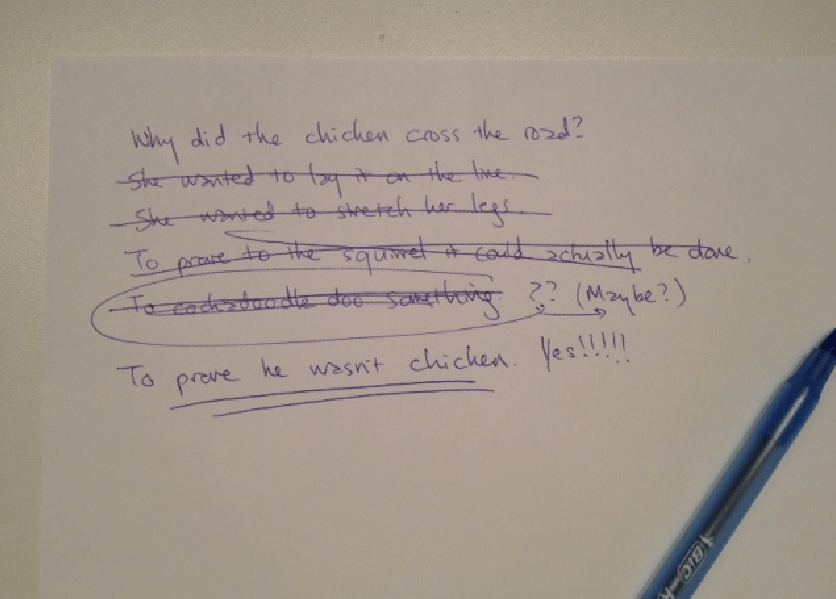 Why did the chicken cross the road?
She wanted to lay it on the line.
She wanted to stretch her legs.
To prove to the squirrel it could actually be done.
To cockadoodle doo something. ?? (Maybe?)
To prove he wasn't chicken. Yes!!!!!
BIC